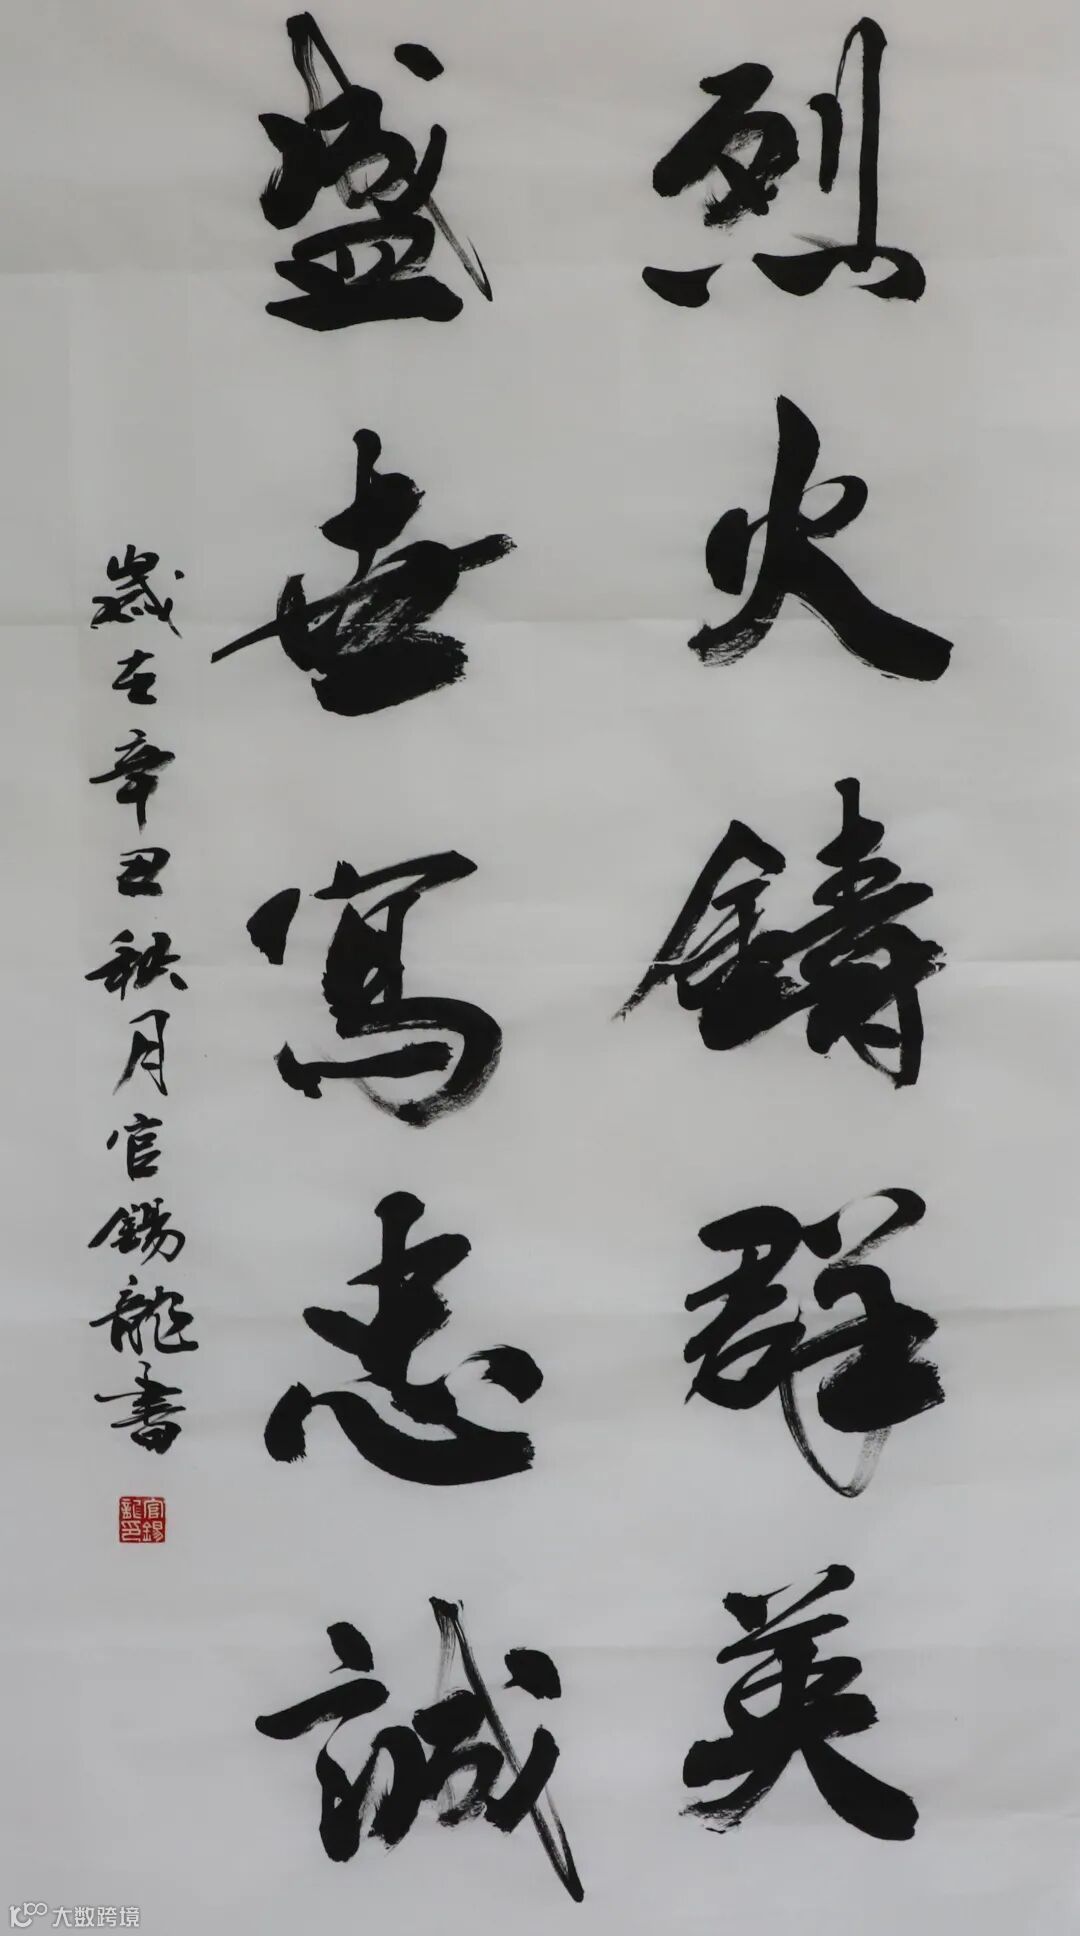 烈火鑄群英
盛世寫忠誠
歲在辛丑秋月官錫龍書
官錫龍印
大数跨境